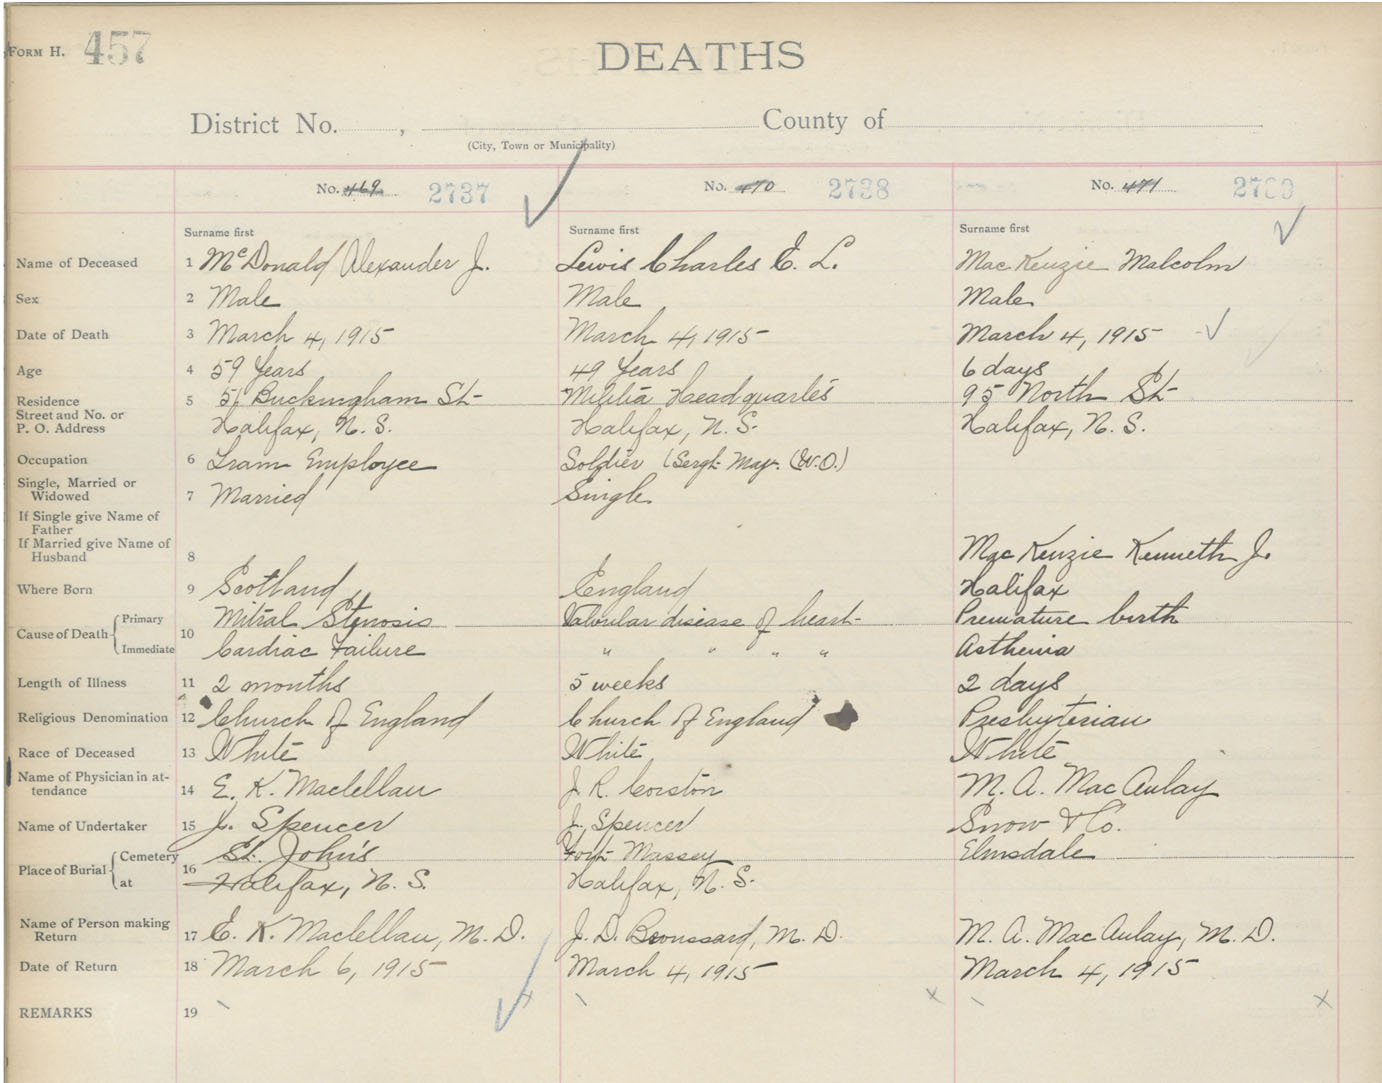 FORM H. 457
DEATHS
District No. , County of
(City, Town or Municipality)
No. 469 2737 No. 470 2738 No. 471
Surname first Surname first Surname first
Name of Deceased 1 McDonald Alexander J. Lewis Charles E. L. MacKenzie Malcolm
Sex 2 Male Male Male
Date of Death 3 March 4, 1915 March 4, 1915 March 4, 1915
Age 4 59 Years 49 Years 6 days
Residence 5 51 Buckingham St Militia Headquarters 95 North St
Street and No. or
P. O. Address Halifax, N. S. Halifax, N. S. Halifax, N. S.
Occupation 6 Tram Employee Soldier (Sergt. Maj. (W.O.)
Single, Married or
Widowed 7 Married Single
If Single give Name of
Father
If Married give Name of
Husband 8 MacKenzie Kenneth J.
Where Born 9 Scotland England Halifax
Cause of Death Primary Mitral Stenosis Valvular disease of heart Premature birth
10 Immediate Cardiac Failure " " " " Asthenia
Length of Illness 11 2 months 5 weeks 2 days
Religious Denomination 12 Church of England Church of England Presbyterian
Race of Deceased 13 White White White
Name of Physician in at-
tendance 14 E. K. Maclellan J. R. Corston M. A. MacAulay
Name of Undertaker 15 J. Spencer J. Spencer Snow & Co.
Place of Burial Cemetery St. John's Fort Massey Elmsdale
16 at Halifax, N. S. Halifax, N. S.
Name of Person making
Return 17 E. K. Maclellan, M. D. J. D. Broussard, M. D. M. A. MacAulay, M. D.
Date of Return 18 March 6, 1915 March 4, 1915 March 4, 1915
REMARKS 19